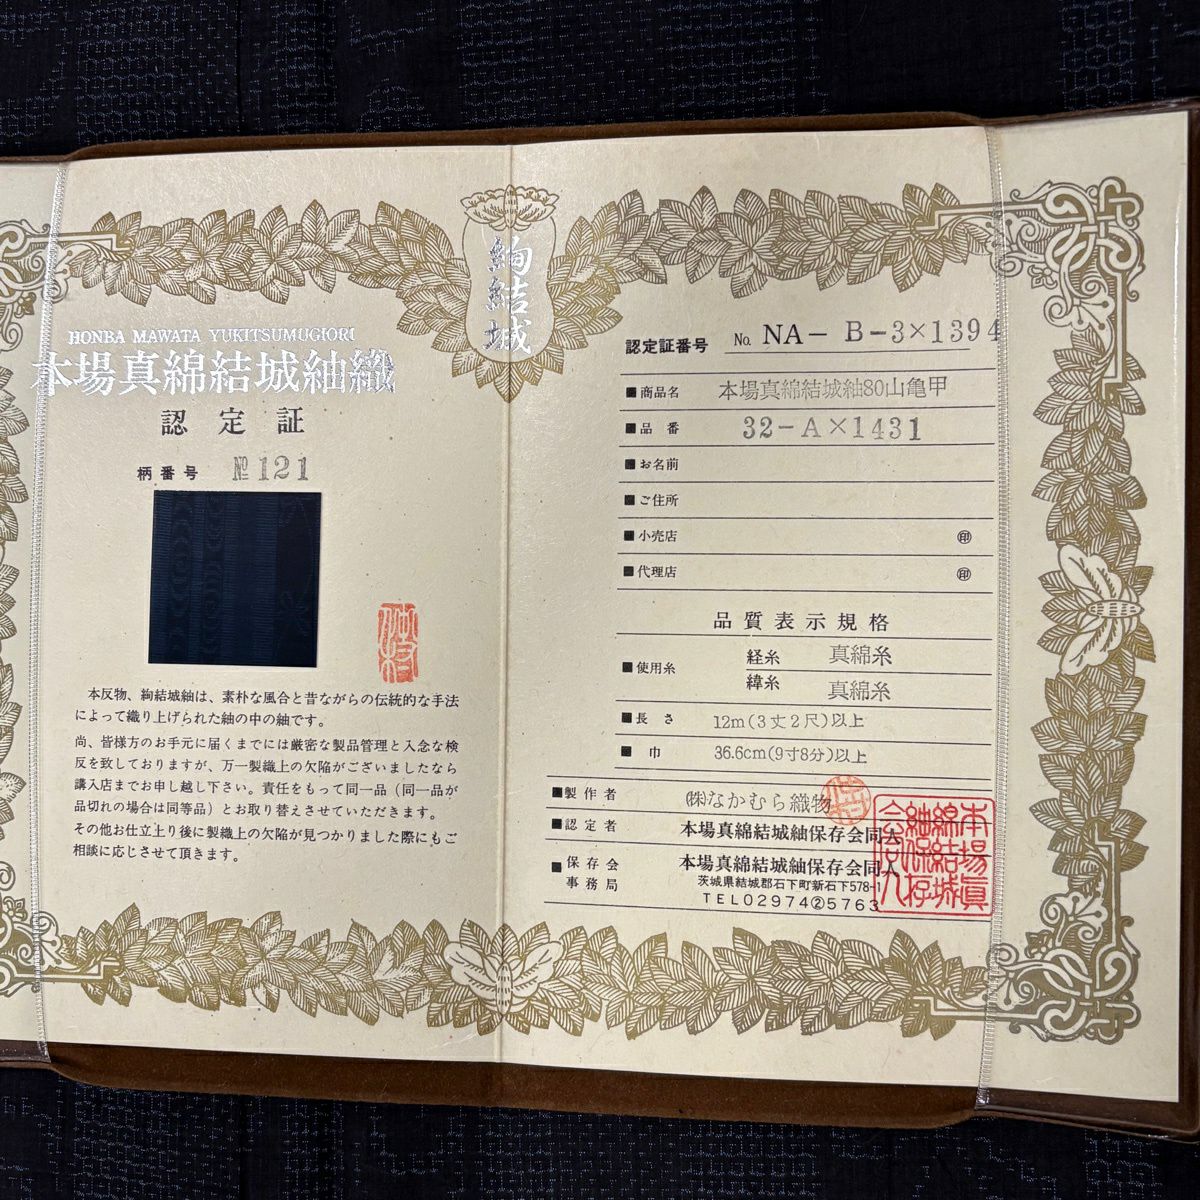 絢結城
HONBA MAWATA YUKITSUMUGIORI
本場真綿結城紬織
認定証
柄番号 №121
本反物、絢結城紬は、素朴な風合と昔ながらの伝統的な手法
によって織り上げられた紬の中の紬です。
尚、皆様方のお手元に届くまでには厳密な製品管理と入念な検
反を致しておりますが、万一製織上の欠陥がございましたなら
講入店までお申し越し下さい。責任をもって同一品（同一品が
品切れの場合は同等品）とお取り替えさせていただきます。
その他お仕立上り後に製織上の欠陥が見つかりました際にもご
相談に応じさせて頂きます。
認定証番号 No. NA- B-3×1394
■商品名 本場真綿結城紬80山亀甲
■品番 32-A×1431
■お名前
■ご住所
■小売店 ㊞
■代理店 ㊞
品質表示規格
■使用糸 経糸 真綿糸
緯糸 真綿糸
■長さ 12m(3丈2尺)以上
■巾 36.6cm(9寸8分)以上
■製作者 ㈱なかむら織物
■認定者 本場真綿結城紬保存会同人
■保存会事務局 本場真綿結城紬保存会同人
茨城県結城郡石下町新石下578-1
TEL02974②5763
本場眞綿結城紬保存会同人